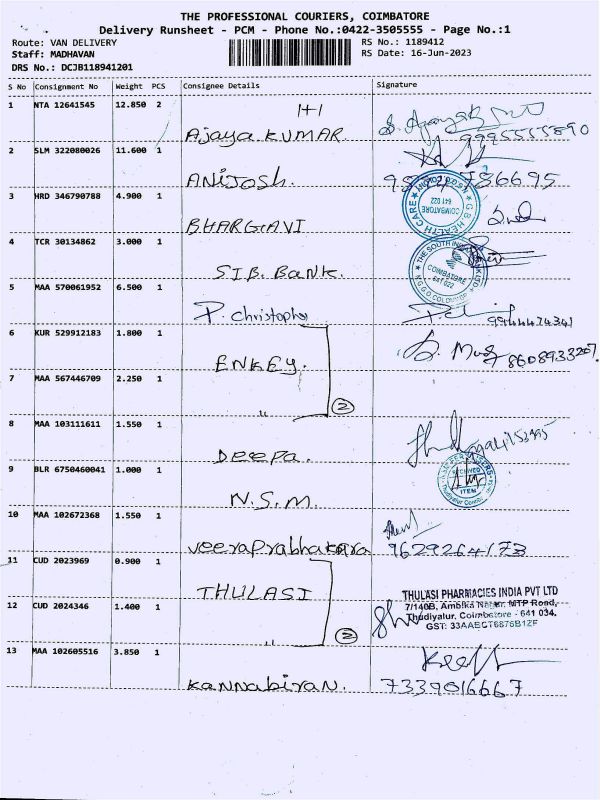 THE PROFESSIONAL COURIERS, COIMBATORE
Delivery Runsheet - PCM - Phone No.:0422-3505555 - Page No.:1
Route: VAN DELIVERY
Staff: MADHAVAN
DRS No.: DCJB118941201
RS No.: 1189412
RS Date: 16-Jun-2023
S No Consignment No Weight PCS Consignee Details Signature
1 NTA 12641545 12.850 2
1+1
Ajaya KUMAR
2 SLM 322080026 11.600 1
ANiJosh.
3 HRD 346790788 4.900 1
BHARGIAVI
G.B. HEALTH CARE
COIMBATORE
641 022
4 TCR 30134862 3.000 1
S I B. Bank.
THE SOUTH INDIAN BANK LTD
COIMBATORE
641 022
5 MAA 570061952 6.500 1
P. christopher
9944474341
6 KUR 529912183 1.800 1
ENKEY.
8608933207.
7 MAA 567446709 2.250 1
"
2
8 MAA 103111611 1.550 1
Deepa.
9 BLR 6750460041 1.000 1
N.S.M.
RECEIVED
ITEM
10 MAA 102672368 1.550 1
veeraprabhakara
9629264173
11 CUD 2023969 0.900 1
THULASI
THULASI PHARMACIES INDIA PVT LTD
7/140B, Ambika Nagar, MTP Road,
Thudiyalur, Coimbatore - 641 034.
GST: 33AABCT6876B1ZF
12 CUD 2024346 1.400 1
"
2
13 MAA 102605516 3.850 1
Kannabiran.
7339016667